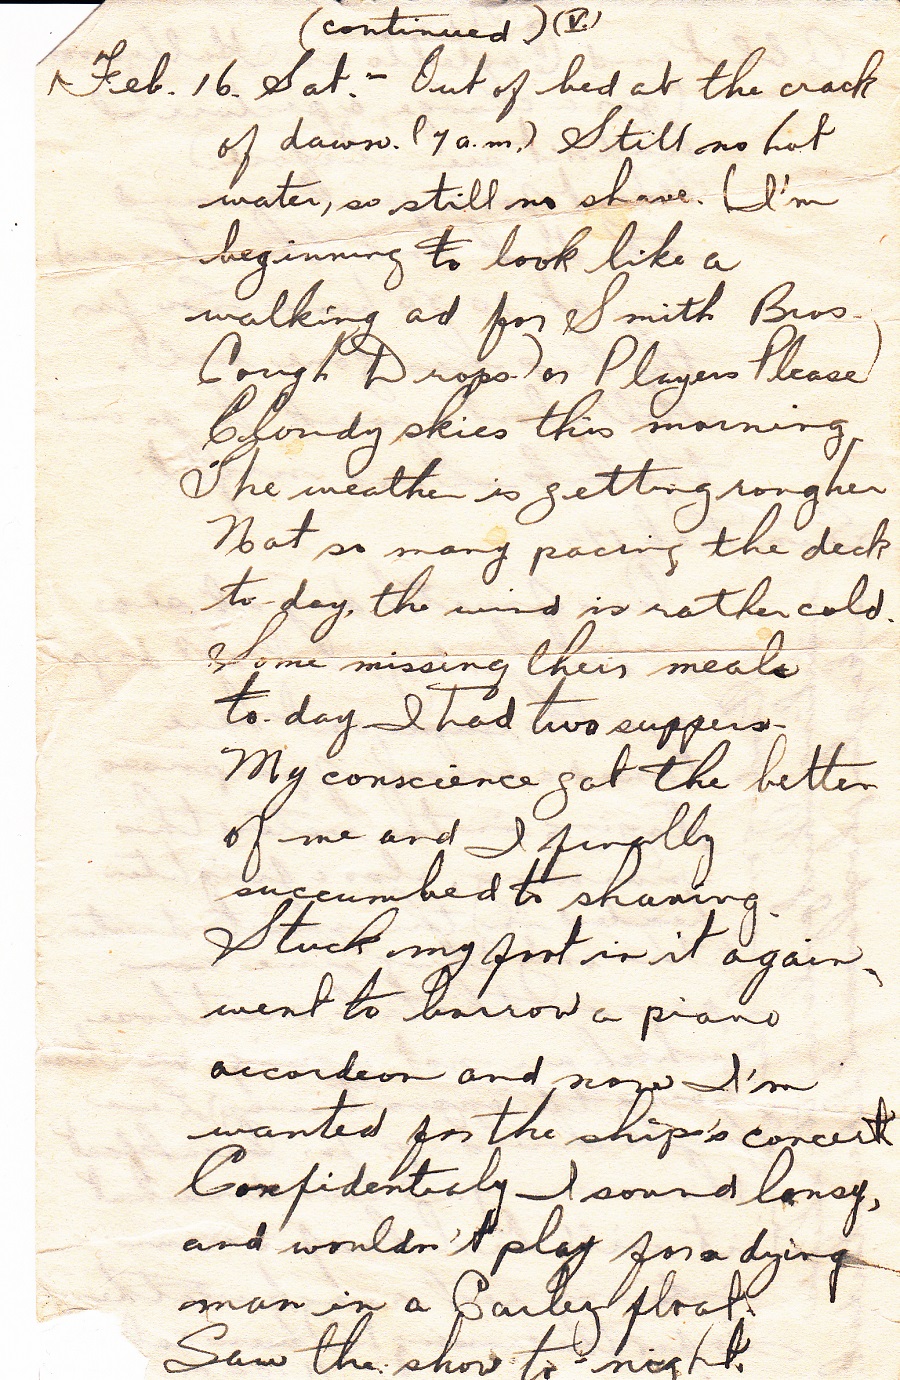 (continued) (V.)
Feb. 16. Sat:- Out of bed at the crack
of dawn. (7 a.m.) Still no hot
water, so still no shave. (I'm
beginning to look like a
walking ad for Smith Bros.
Cough Drops) or Players Please)
Cloudy skies this morning,
The weather is getting rougher
Not so many pacing the deck
to-day, the wind is rather cold.
Some missing their meals
to-day I had two suppers.
My conscience got the better
of me and I finally
succumbed to shaving.
Stuck my foot in it again,
went to borrow a piano
accordeon and now I'm
wanted for the ship's concert
Confidentialy I sound lousy,
and wouldn't play for a dying
man in a Carley float.
Saw the show to-night.